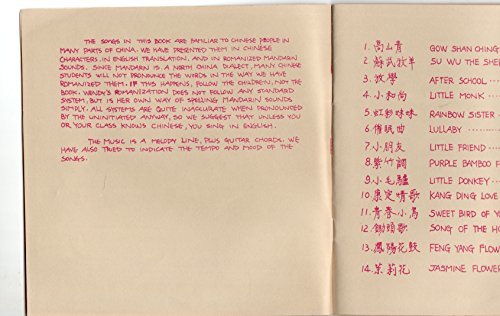 THE SONGS IN THIS BOOK ARE FAMILIAR TO CHINESE PEOPLE IN
MANY PARTS OF CHINA. WE HAVE PRESENTED THEM IN CHINESE
CHARACTERS, IN ENGLISH TRANSLATION, AND IN ROMANIZED MANDARIN
SOUNDS. SINCE MANDARIN IS A NORTH CHINA DIALECT, MANY CHINESE
STUDENTS WILL NOT PRONOUNCE THE WORDS IN THE WAY WE HAVE
ROMANIZED THEM. IF THIS HAPPENS, FOLLOW THE CHILDREN, NOT THE
BOOK. WENDY'S ROMANIZATION DOES NOT FOLLOW ANY STANDARD
SYSTEM, BUT IS HER OWN WAY OF SPELLING MANDARIN SOUNDS
SIMPLY. ALL SYSTEMS ARE QUITE INACCURATE WHEN PRONOUNCED
BY THE UNINITIATED ANYWAY, SO WE SUGGEST THAT UNLESS YOU
OR YOUR CLASS KNOWS CHINESE, YOU SING IN ENGLISH.
THE MUSIC IS A MELODY LINE, PLUS GUITAR CHORDS. WE
HAVE ALSO TRIED TO INDICATE THE TEMPO AND MOOD OF THE
SONGS.
1. 高山青 GOW SHAN CHING
2. 蘇武牧羊 SU WU THE SHE
3. 放學 AFTER SCHOOL
4. 小和尚 LITTLE MONK
5. 虹彩妹妹 RAINBOW SISTER
6. 催眠曲 LULLABY
7. 小朋友 LITTLE FRIEND
8. 紫竹調 PURPLE BAMBOO F
9. 小毛驢 LITTLE DONKEY
10. 康定情歌 KANG DING LOVE
11. 青春小鳥 SWEET BIRD OF Y
12. 鋤頭歌 SONG OF THE HO
13. 鳳陽花鼓 FENG YANG FLOWE
14. 茉莉花 JASMINE FLOWER